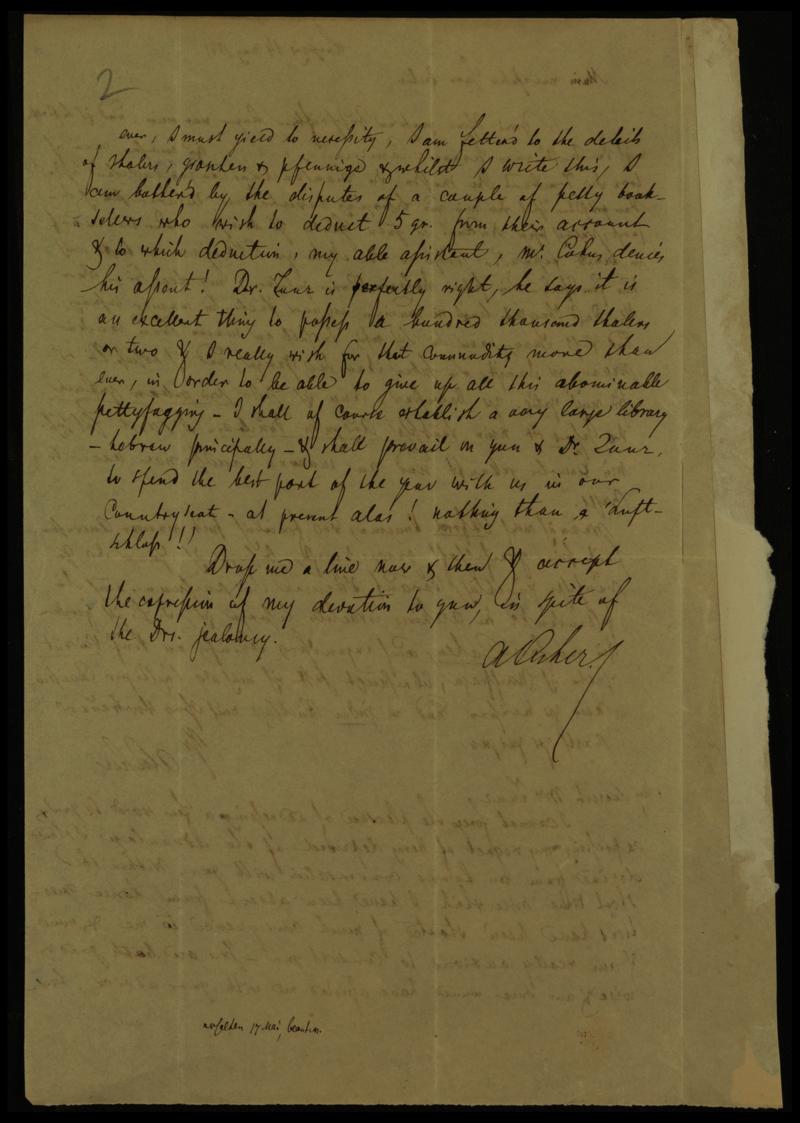 2
ever, I must yield to necessity, I am fetter'd to the details
of thalers, groshen & pfennige & whilst I write this, I
am bother'd by the disputes of a couple of petty book-
sellers who wish to deduct 5 gr. from their account
& to which deduction, my able assistant, Mr. Cohn, denies
his assent! Dr. Zunz is perfectly right, he says it is
an excellent thing to possess a hundred thousand thalers
or two & I really wish for that commodity more than
ever, in order to be able to give up all this abominable
pettyfogging - I shall of course establish a very large library
- hebrew principally - & shall prevail on you & Dr. Zunz,
to spend the best part of the year with us in our
Countryseat - at present alas! nothing than a "Luft-
schloss"!!
Drop me a line now & then & accept
the expression of my devotion to you, in spite of
the Drs. jealousy.
A Asher
erhalten 17 Mai, beantw.